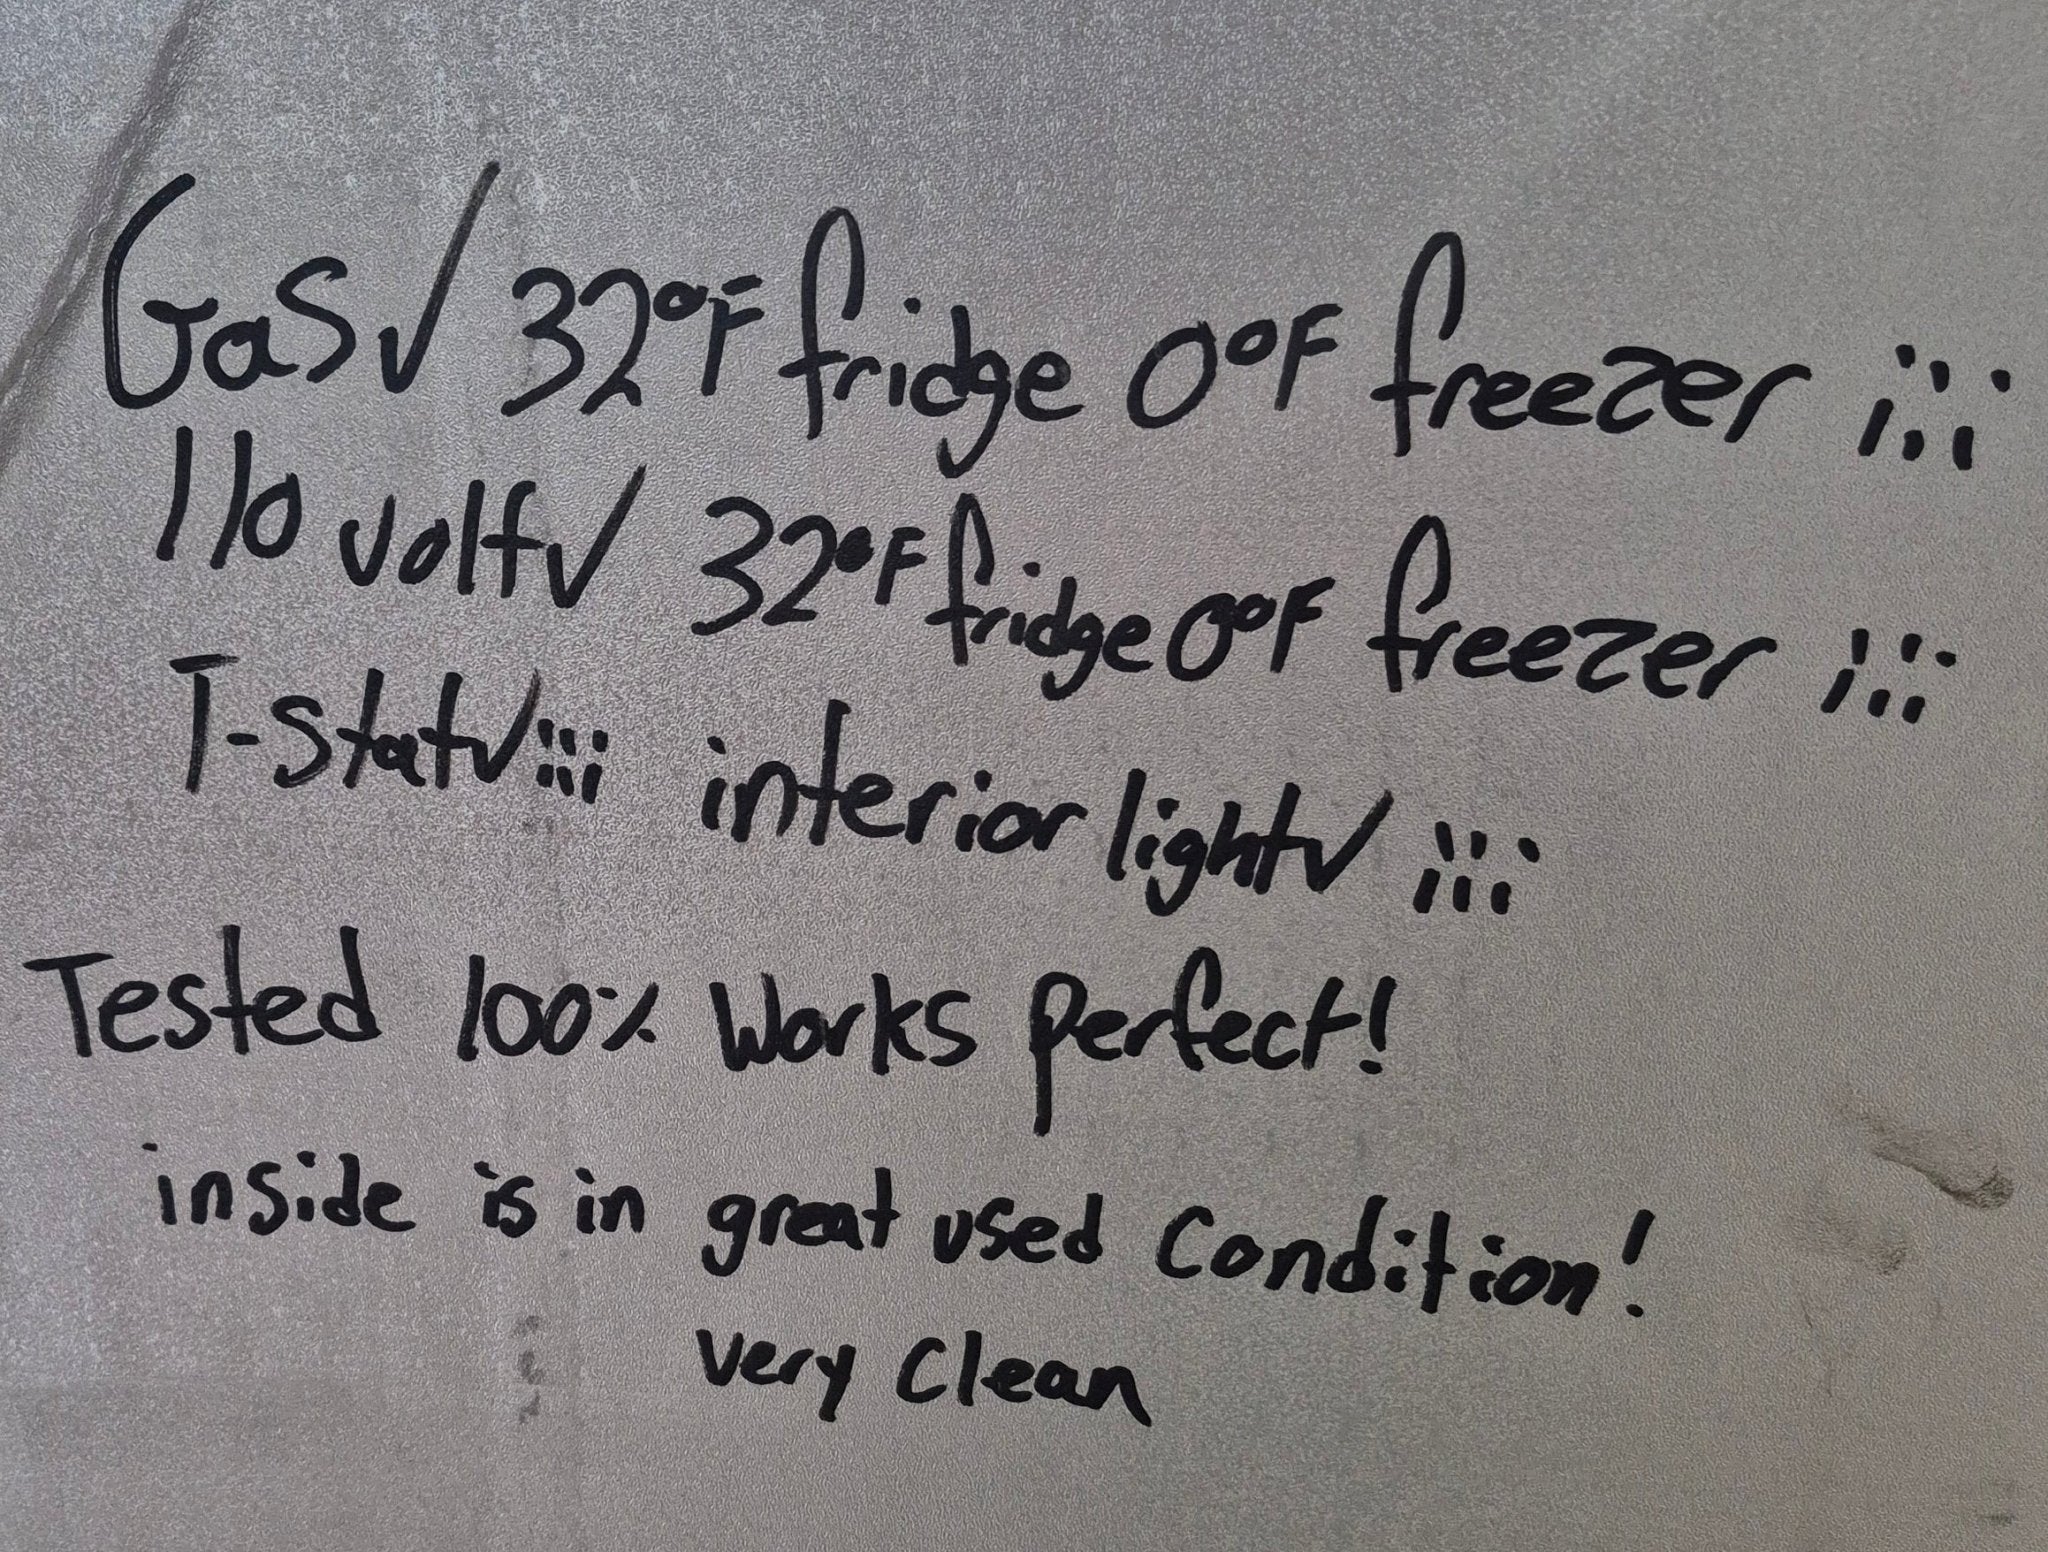 Gas✓ 32°F fridge 0°F freezer ¡¡¡
110 volt✓ 32°F fridge 0°F freezer ¡¡¡
T-stat✓ ¡¡¡ interior light✓ ¡¡¡
Tested 100% Works perfect!
inside is in great used Condition!
very Clean